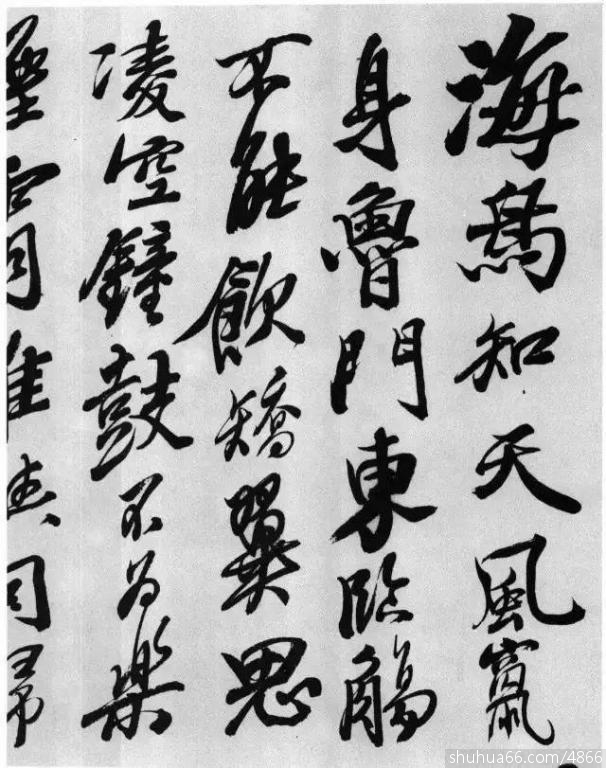 海鳥知天風竄
身魯門東臨觴
不能飲矯翼思
凌空鐘鼓不為樂
shuhua66.com/4866